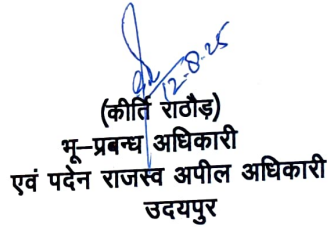 12-8-25
(कीर्ति राठौड़)
भू-प्रबन्ध अधिकारी
एवं पदेन राजस्व अपील अधिकारी
उदयपुर